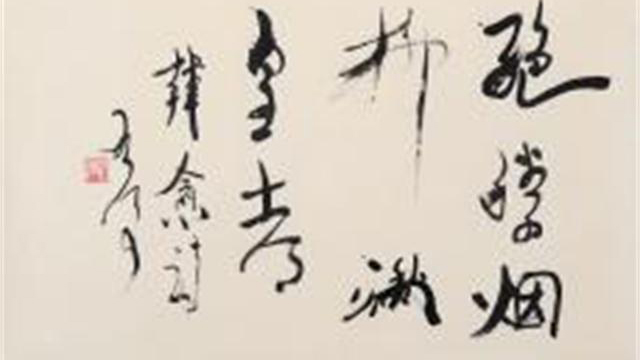 绝胜烟
柳满
皇都
韩愈诗